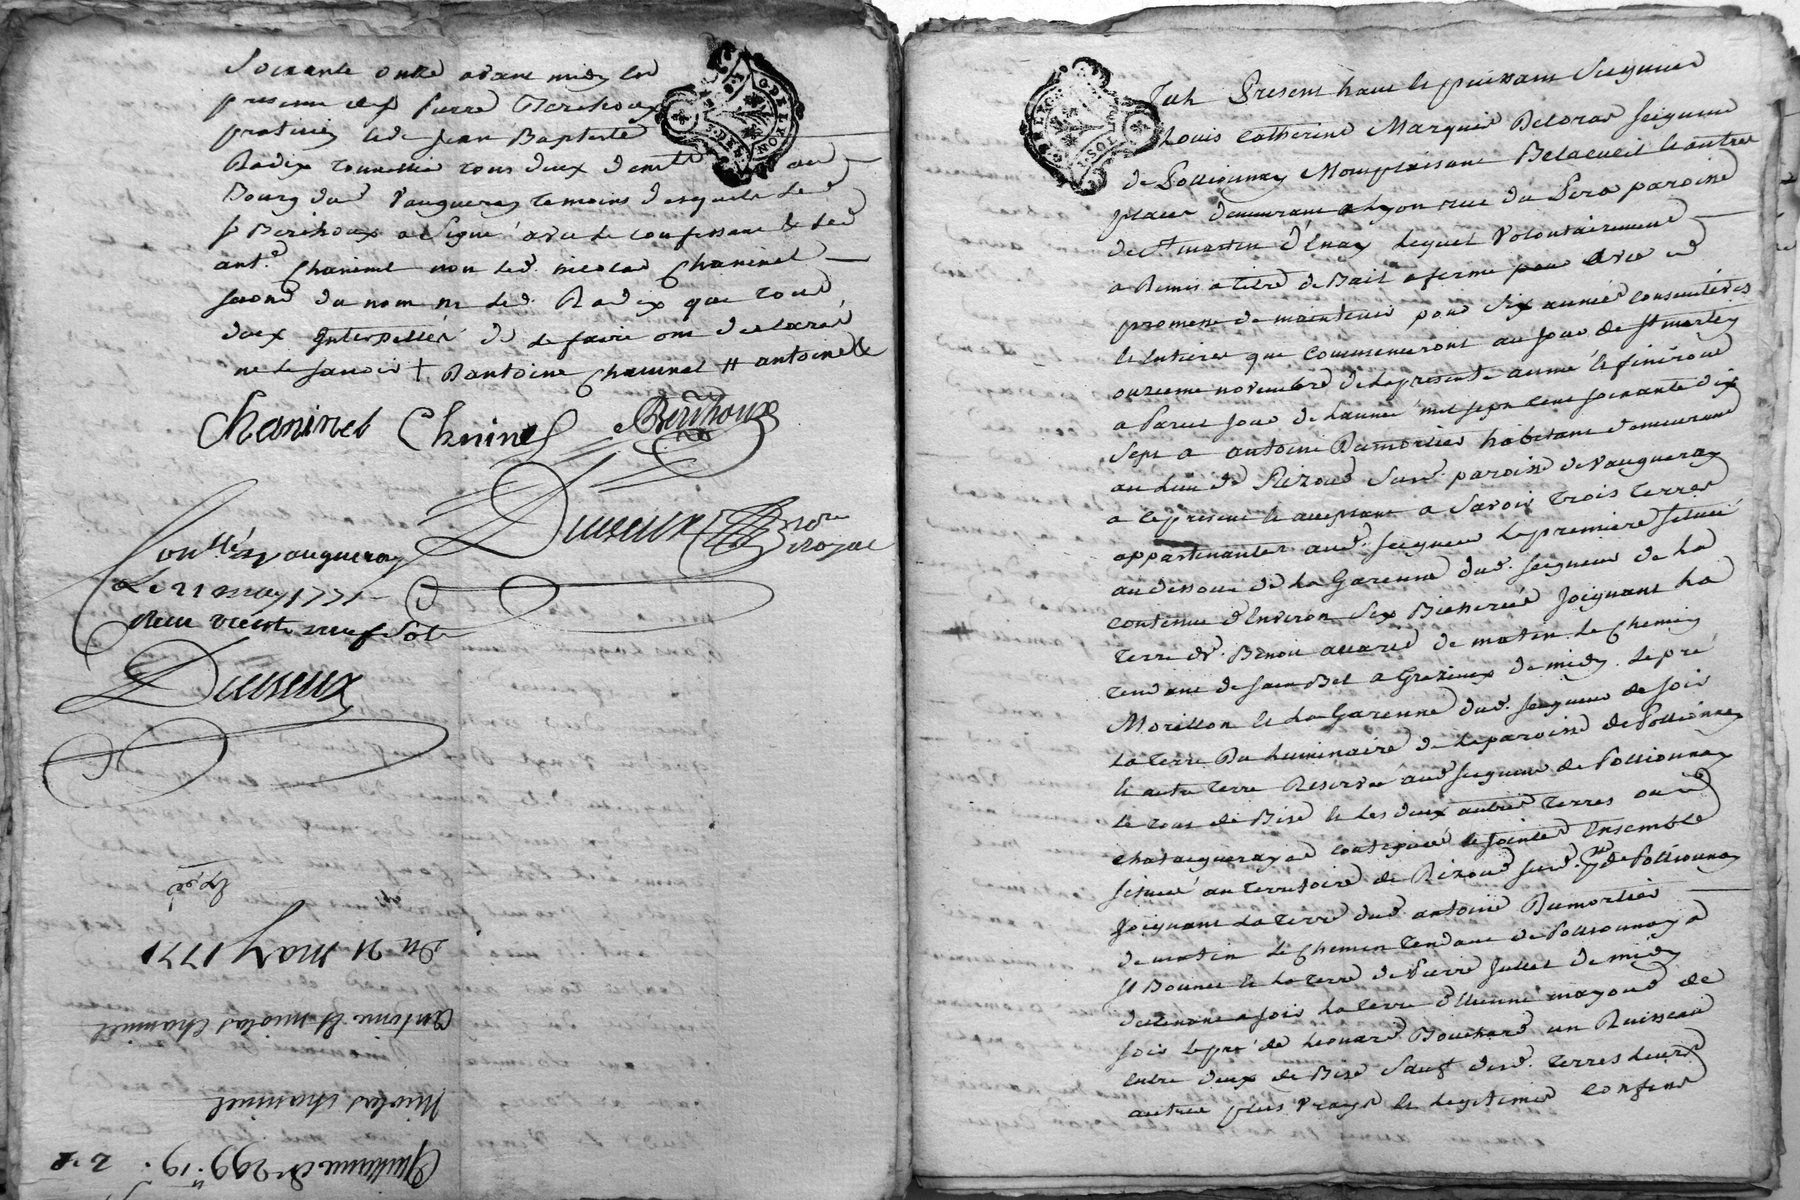 Soixante onze avant midy en
presence de sr Pierre Berthoux
praticien et de Jean Baptiste
Radix tonnellier tous deux demts au
Bourg dud Vaugneray temoins desquels led
sr Berthoux a signé avec le confessant & led
ant.e Chaninel non led. nicolas Chaninel
faond du nom ny led. Radix que tous
deux Interpellés de le faire ont declaré
ne le savoir + Dantoine Chaninel # antoine &
Chaninel Chaninel Berthoux
Duiseux nore
royal
Conllé à Vaugneray
Le 21 may 1771
Reçu vient neuf sols
Duiseux
expié
Du 21 May 1771
Quittance de 299.# 19.s
nicolas chaninel
antoine et nicolas chaninel
Fut Present haut et puissant Seigneur
Louis Catherine Marquis Deloras seigneur
de Pollionnay Montplaisant Belacueil & autres
places demeurant a Lyon rue du Pera paroisse
de St martin d'Enay Lequel Volontairement
a Remis a titre de Bail a ferme pour avec
promesse de maintenir pour six années consecutives
& entieres que commenceront au jour de st martin
onzieme novembre de la presente année & finiront
a Pareil jour de l'année mil sept cent soixante dix
sept a antoine Dumortier habitant demeurant
au Lieu de Rizoud sur. paroisse de Vaugneray
a ce present & acceptant a savoir trois terres
appartenantes aud. seigneur La premiere située
au dessous de La Garenne dud. seigneur de La
contenue d'Environ six Bicherées Joignant La
terre de. Benoit allard de matin Le Chemin
tendant de sain Bel a Grezieux de midy. Le pré
Morillon & La Garenne dud. seigneur de soir
La terre Du Luminaire de La paroisse de Pollionnay
& autre terre Reservée aud seigneur de Pollionnay
Le tout de Bise & Les deux autres terres ou
chataigneraye contigues & jointes Ensemble
situées au territoire de Rizoud sur. psse de Pollionnay
Joignant La terre dud. antoine Dumortier
de matin Le Chemin tendant de Pollionnay a
st Bonnet & La terre de Pierre Jullet de midy
declinant a soir La terre d'Etienne mayoud de
soir Le pré de Leonard Bouchard un Ruisseau
entre deux de Bise Sauf desd. terres Leurs
autres plus Vrays & Legitimes Confins